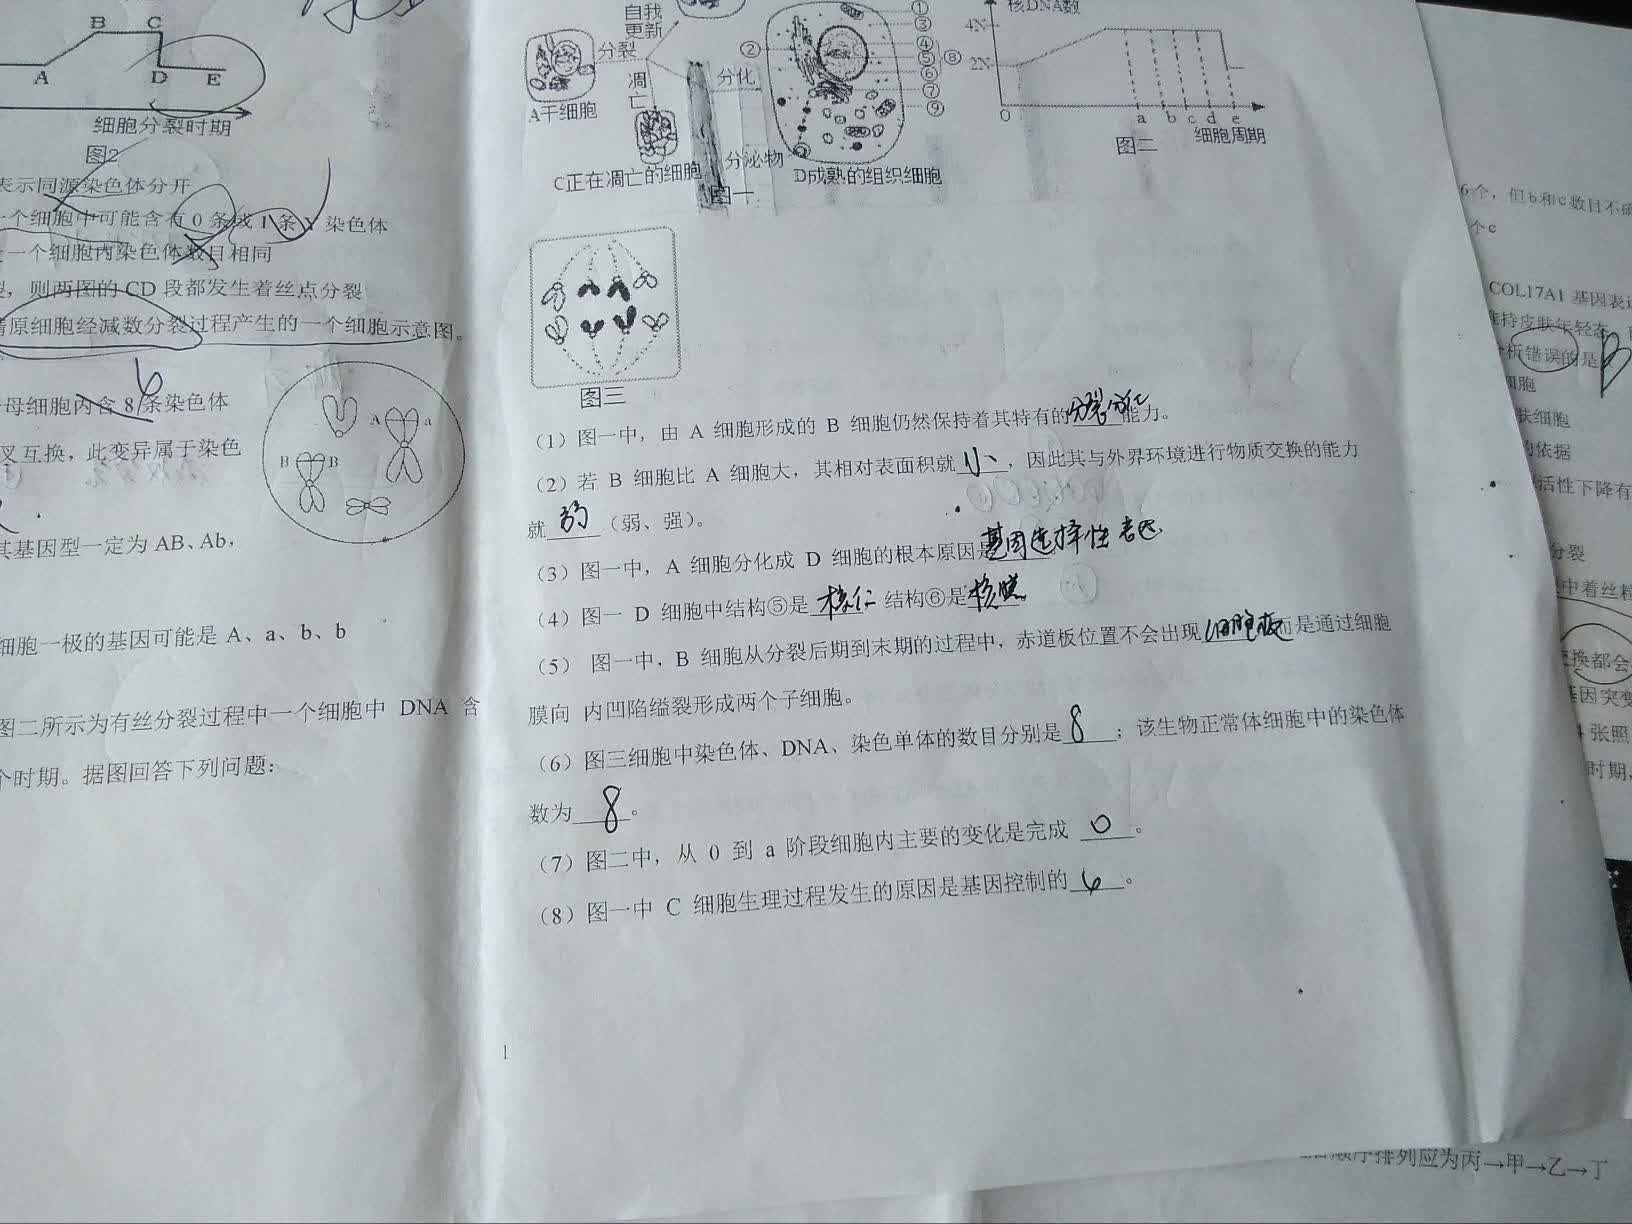 B C
A D E
细胞分裂时期
图2
表示同源染色体分开
一个细胞中可能含有 0 条或 1 条 Y 染色体
一个细胞内染色体数目相同
，则两图的 CD 段都发生着丝点分裂
原细胞经减数分裂过程产生的一个细胞示意图。
6
母细胞内含 8 条染色体
叉互换，此变异属于染色
A a
B B
其基因型一定为 AB、Ab，
细胞一极的基因可能是 A、a、b、b
图二所示为有丝分裂过程中一个细胞中 DNA 含
个时期。据图回答下列问题：
自我
更新
分裂
凋
亡
分化
A干细胞
C正在凋亡的细胞
分泌物
图一
D成熟的组织细胞
① ② ③ ④ ⑤ ⑥ ⑦ ⑧ ⑨
核DNA数
4N
2N
0 a b c d e
图二
细胞周期
图三
（1）图一中，由 A 细胞形成的 B 细胞仍然保持着其特有的分裂分化能力。
（2）若 B 细胞比 A 细胞大，其相对表面积就 小 ，因此其与外界环境进行物质交换的能力
就 弱 （弱、强）。
（3）图一中，A 细胞分化成 D 细胞的根本原因是基因选择性表达
（4）图一 D 细胞中结构⑤是 核仁 结构⑥是核膜
（5） 图一中，B 细胞从分裂后期到末期的过程中，赤道板位置不会出现 细胞板 而是通过细胞
膜向 内凹陷缢裂形成两个子细胞。
（6）图三细胞中染色体、DNA、染色单体的数目分别是 8 ；该生物正常体细胞中的染色体
数为 8 。
（7）图二中，从 0 到 a 阶段细胞内主要的变化是完成 0 。
（8）图一中 C 细胞生理过程发生的原因是基因控制的 6 。
1
6个，但b和c数目不
个c
COL17A1 基因表
持皮肤年轻态，
析错误的是 B
细胞
肤细胞
的依据
活性下降有
分裂
中着丝粒
交换都会
基因突变
张照
时期，
顺序排列应为丙→甲→乙→丁